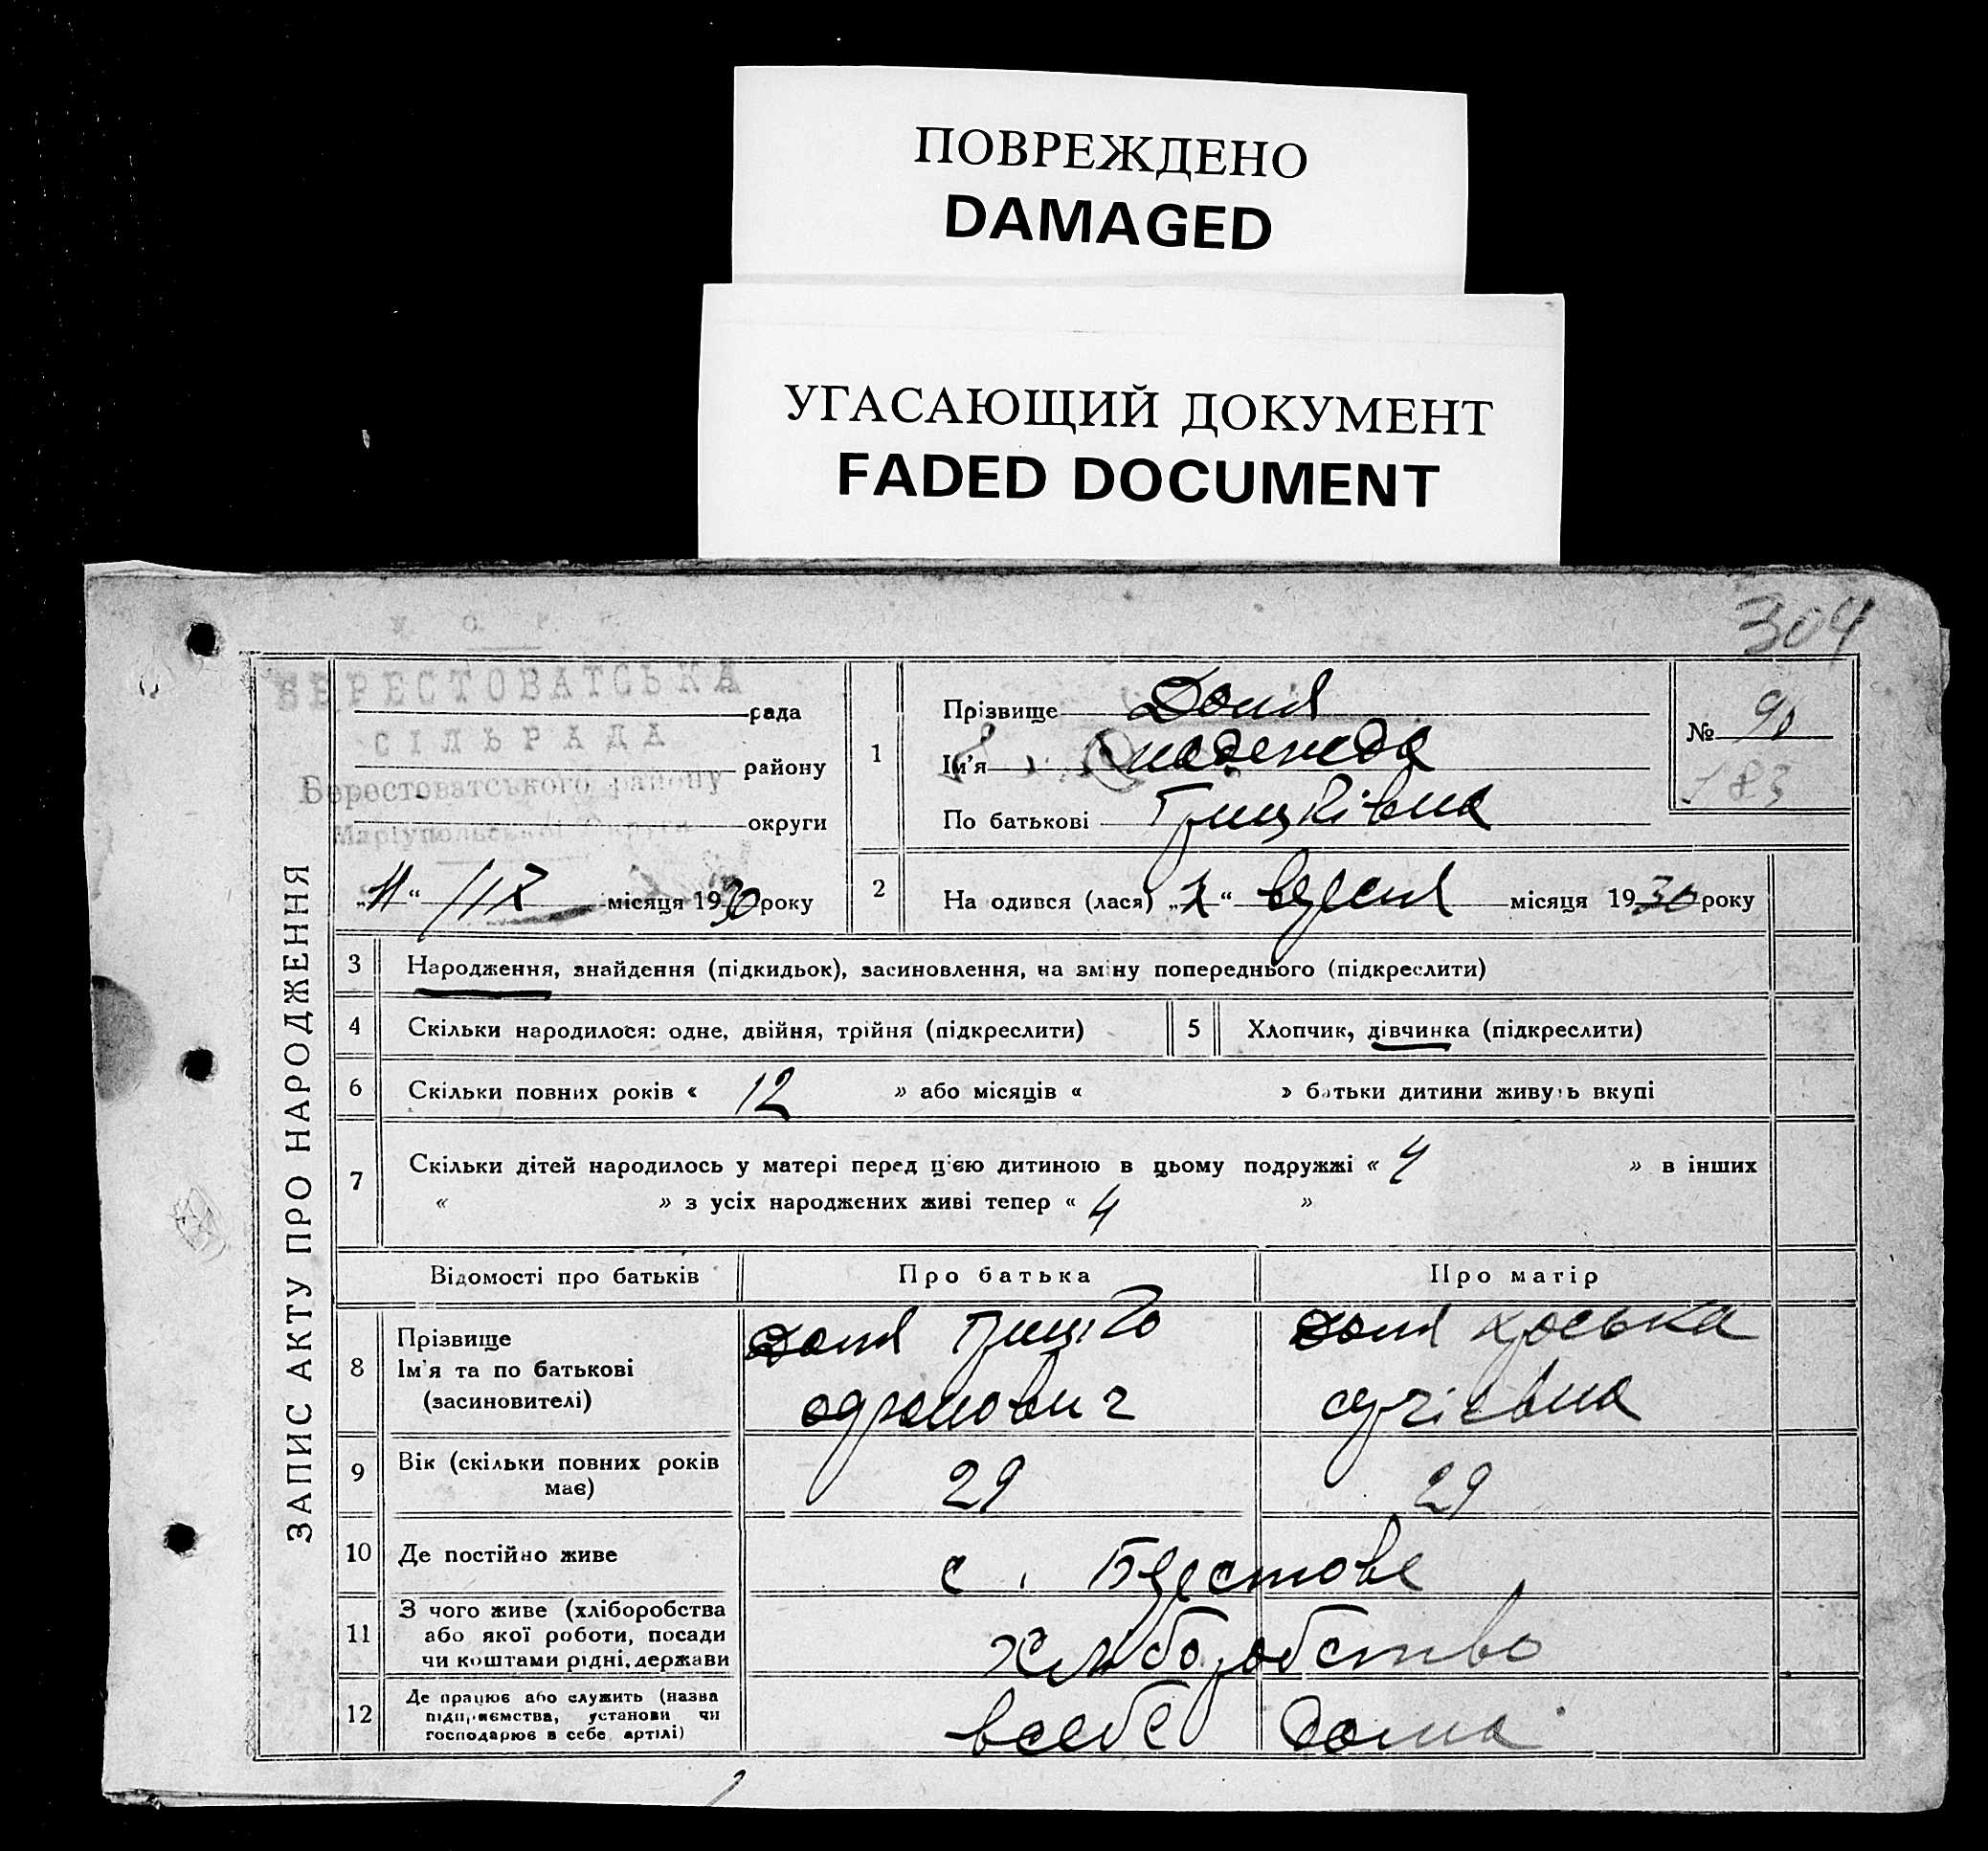 ПОВРЕЖДЕНО
DAMAGED
УГАСАЮЩИЙ ДОКУМЕНТ
FADED DOCUMENT
304
БЕРЕСТОВАТСЬКА
рада
СІЛЬРАДА
району
Берестоватського району
округи
Маріупольської Округи
„11“ /IX місяця 1930 року
1
Прізвище Доля
Ім'я надежда
По батькові Грицківна
№ 96
183
2
На одився (лася) „ “ вересня місяця 1930 року
ЗАПИС АКТУ ПРО НАРОДЖЕННЯ
3 Народження, знайдення (підкидьок), засиновлення, на зміну попереднього (підкреслити)
4 Скільки народилося: одне, двійня, трійня (підкреслити)
5 Хлопчик, дівчинка (підкреслити)
6 Скільки повних років « 12 » або місяців « » батьки дитини живуть вкупі
7 Скільки дітей народилось у матері перед цією дитиною в цьому подружжі « 4 » в інших
« » з усіх народжених живі тепер « 4 »
Відомості про батьків
Про батька
Про матір
8 Прізвище
Ім'я та по батькові
(засиновителі)
Доля Грицко
Доля
9 Вік (скільки повних років
має)
29
29
10 Де постійно живе
с. Берестове
11 З чого живе (хліборобства
або якої роботи, посади
чи коштами рідні, держави
хліборобство
12 Де працює або служить (назва
підприємства, установи чи
господарює в себе артілі)
всебе дома